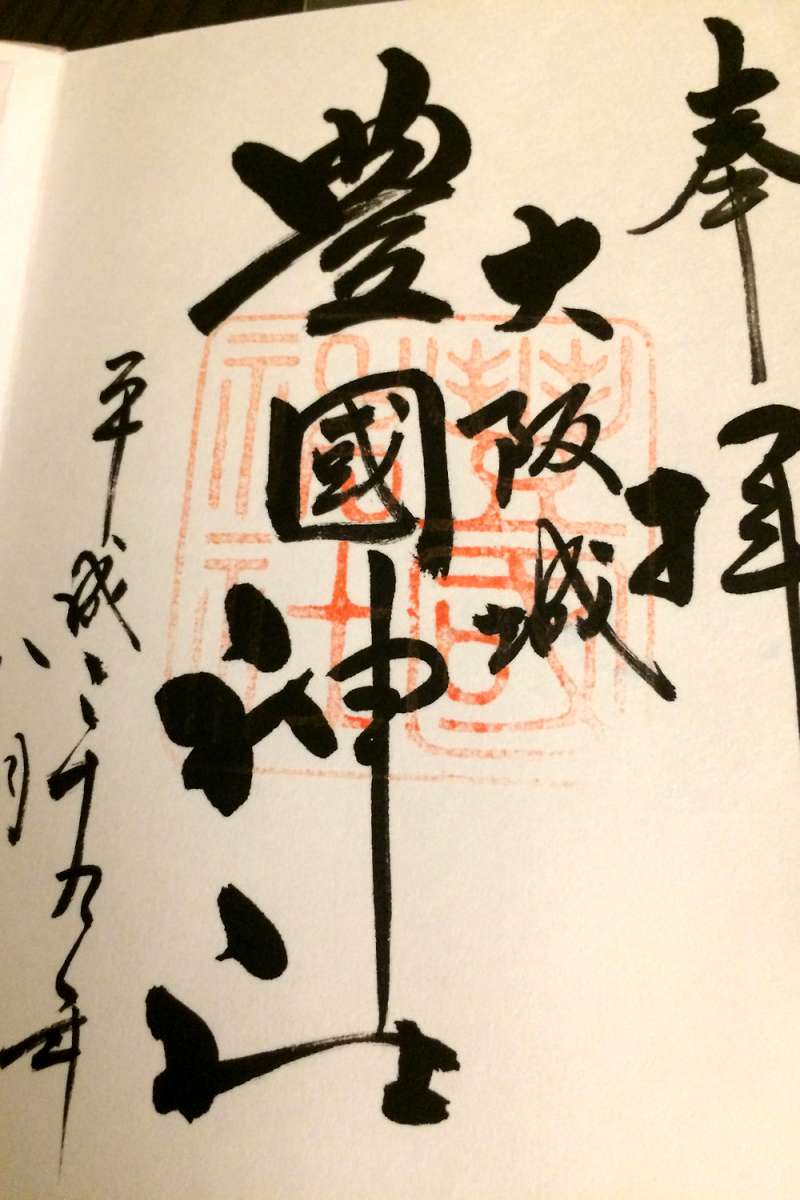 奉拝
大阪城
豊國神社
平成二十九年
八月
豊國神社